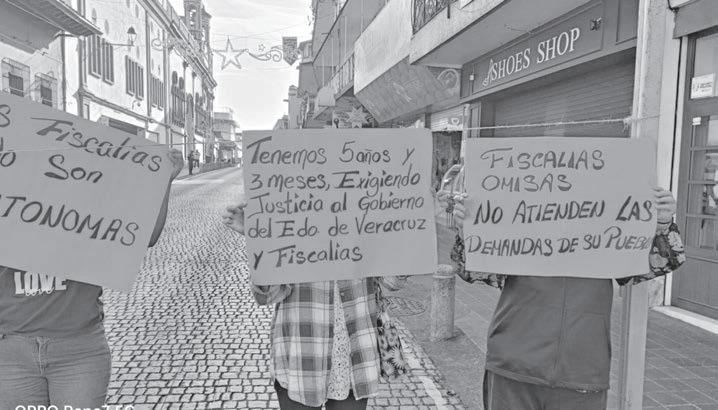 Fiscalías
Son
TONOMAS
LOVE
Tenemos 5 años y
3 meses, Exigiendo
Justicia al Gobierno
del Edo. de Veracruz
y Fiscalias
FISCALIAS
OMISAS
NO ATIENDEN LAS
DEMANDAS DE SU PUEBL
SHOES SHOP
OPPO Reno7 5G